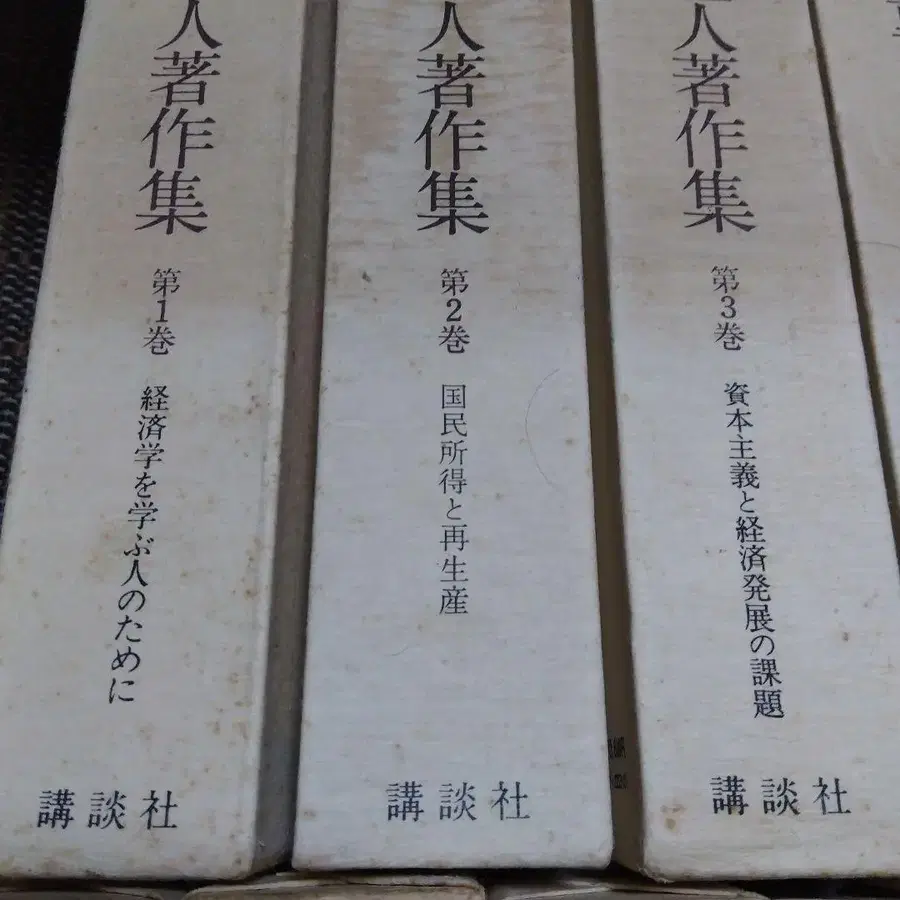 人著作集
第1巻
経済学を学ぶ人のために
講談社
人著作集
第2巻
国民所得と再生産
講談社
人著作集
第3巻
資本主義と経済発展の課題
講談社